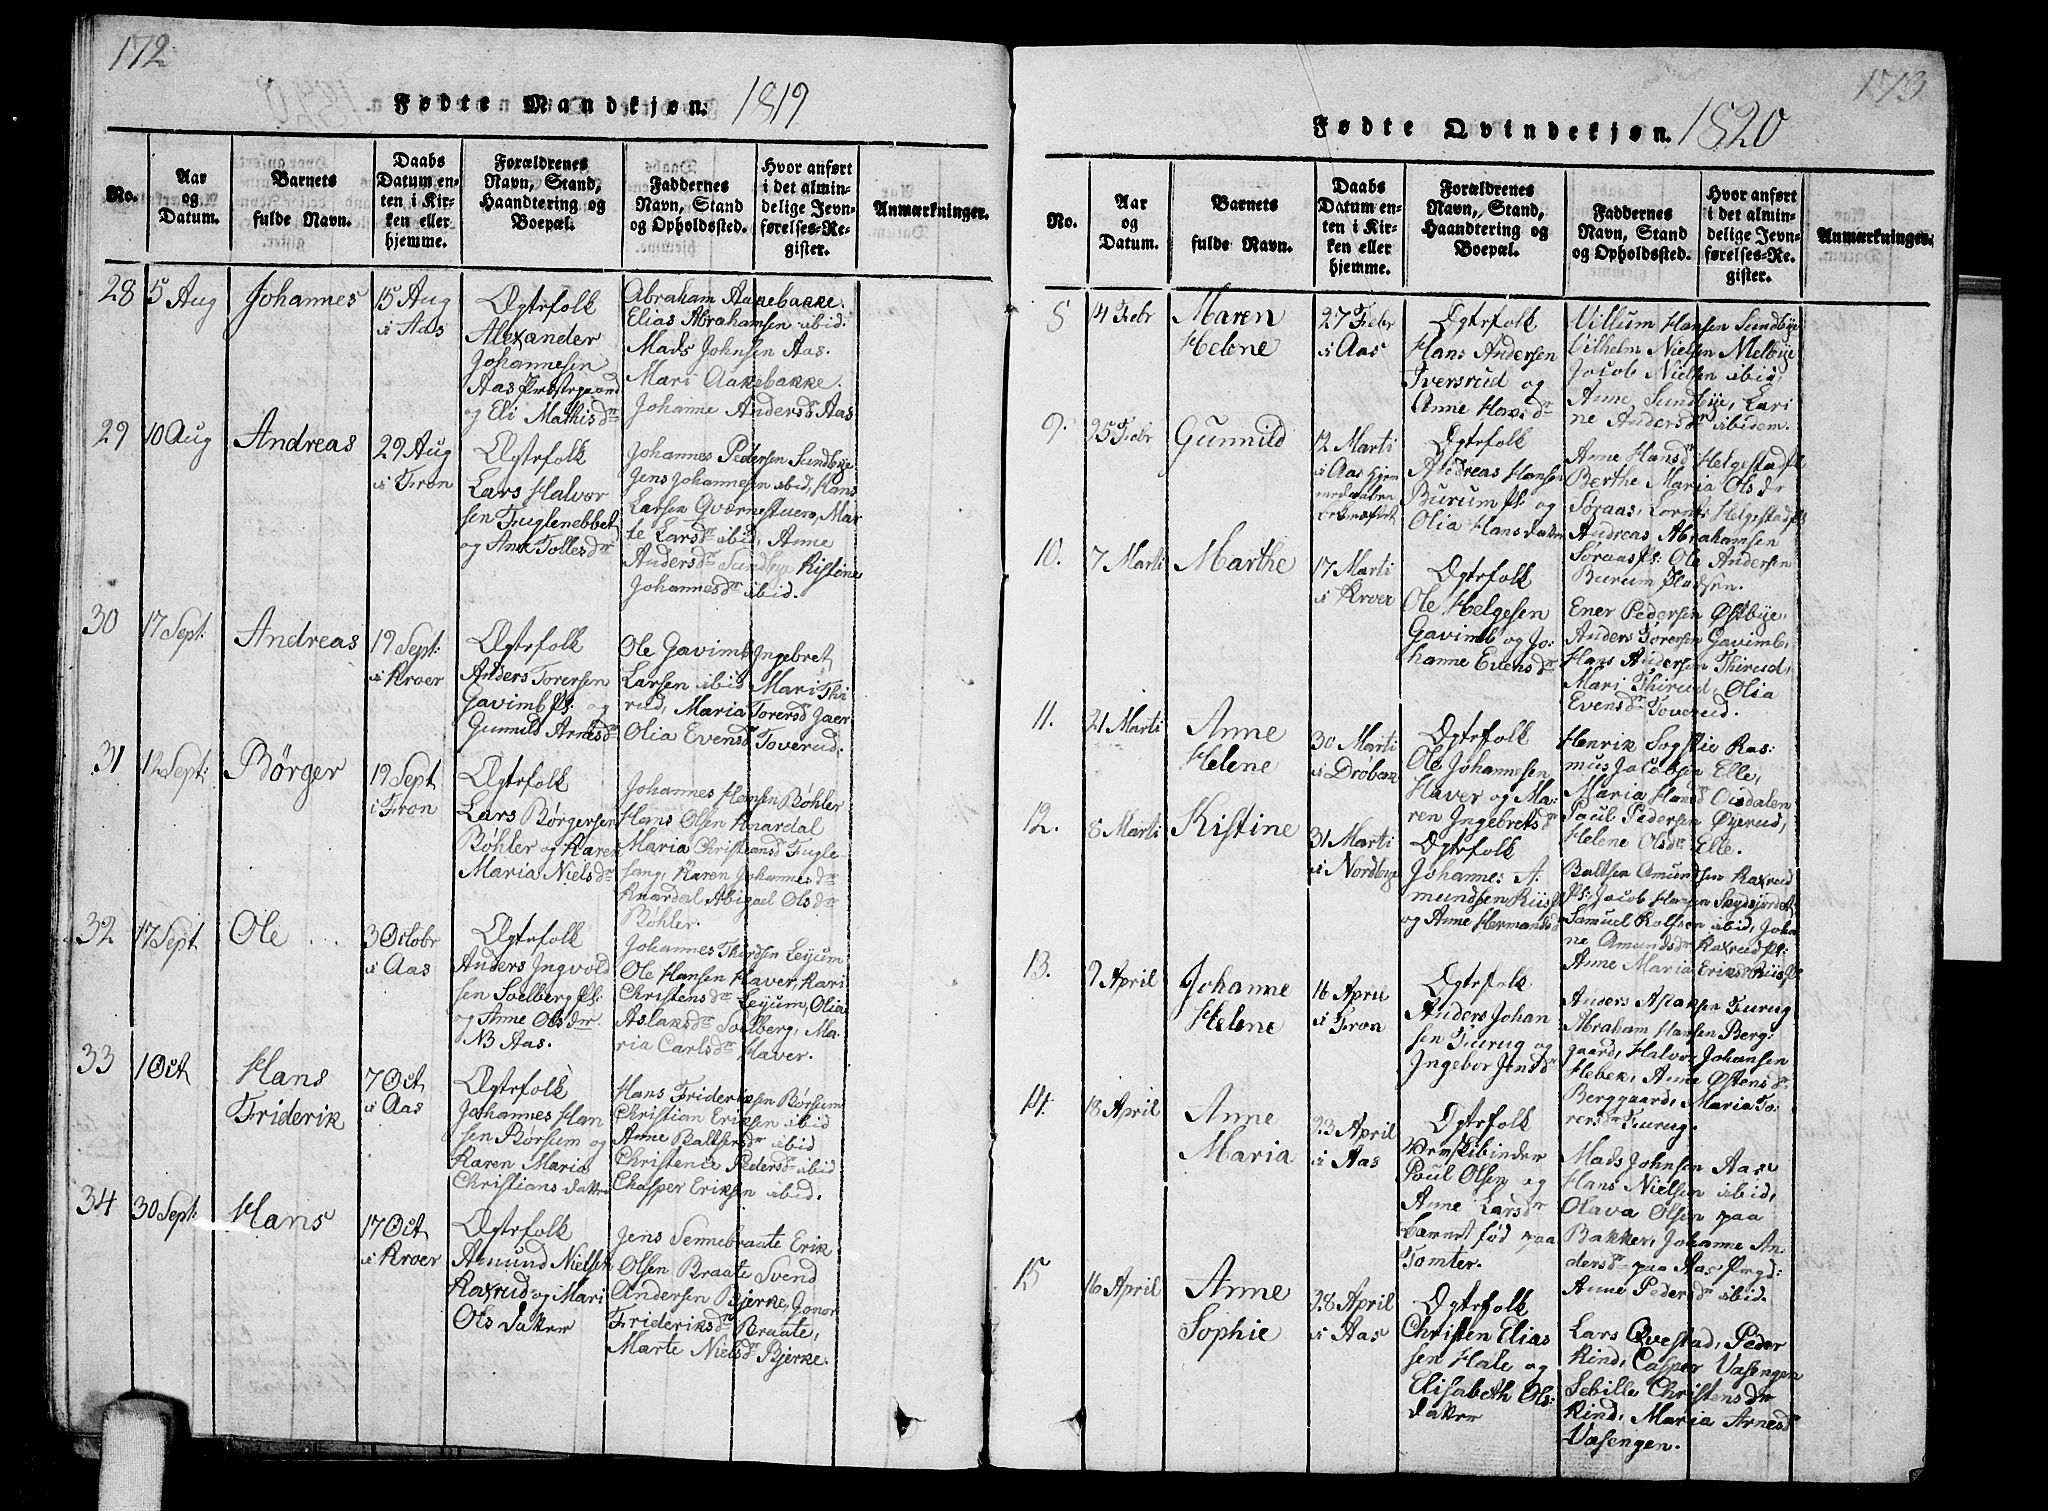 172
Fødte Mandkjøn. 1819
No.
Aar
og
Datum.
Barnets
fulde Navn.
Daabs
Datum en-
ten i Kir-
ken eller
hjemme.
Forældrenes
Navn, Stand,
Haandtering og
Boepæl.
Faddernes
Navn, Stand
og Opholdssted.
Hvor anført
i det almin-
delige Jevn-
førelses-Re-
gister.
Anmærkninger.
28
5 Aug
Johannes
15 Aug
i Aas
Ægtefolk
Alexander
Johannesen
Aas Præstegaard
og Eli Mathisdr
Abraham Aakebakke.
Elias Abrahamsen ibid.
Mads Johnsen Aas.
Mari Aakebakke.
Johanne Andersdr Aas
29
10 Aug
Andreas
29 Aug
i Fron
Ægtefolk
Lars Halvor
sen Fuglenebbet
og Ane Tollesdr
Johannes Pedersen Sundbye
Jens Johannesen ibid, Hans
Larsen Qværnestuen, Mar
te Larsdr ibid, Anne
Andersdr Sundbye Kistine
Johannesdr ibid.
30
17 Sept:
Andreas
19 Sept:
i Kroer
Ægtefolk
Anders Torersen
Gavimb Pl: og
Gunnild Arnesdr
Ole Gavimb, Ingebret
Larsen ibid Mari Thi
rud, Maria Torersd Jaer
Olia Evensd Toverud:
31
12 Sept:
Børger
19 Sept
i Fron
Ægtefolk
Lars Børgersen
Bøhler og Karen
Maria Nielsdr
Johannes Hansen Bøhler
Hans Olsen Knardal
Maria Christiansd Fugle-
sang, Karen Johannesdr
Knardal Abigael Olsdr
Bøhler.
32
17 Sept
Ole
3 Octobr
i Aas
Ægtefolk
Anders Ingvold
sen Solberg Pl:
og Anne Olsdr
NB Aas.
Johannes Thordsen Leyum
Ole Hansen Haver, Kari
Christensdr Leyum, Olia
Aslaksdr Solberg, Ma-
ria Carlsdr Haver.
33
1 Oct
Hans
Friderik
7 Oct
i Aas
Ægtefolk
Johannes Han
sen Børsum og
Karen Maria
Christians datter
Hans Frideriksen Børsum
Christian Eriksen ibid
Anne Baltsersdr ibid
Christence Pedersdr ibid
Chasper Eriksen ibid.
34
30 Sept:
Hans
17 Oct
i Kroer
Ægtefolk
Amund Nielsen
Raxrud og Mari
Ols datter
Jens Sennebraate Erik
Olsen Braate Svend
Andersen Bjerke, Gonor
Frideriksdr Braate,
Marte Nielsdr Bjerke.
173
Fødte Qvindekjøn. 1820
No.
Aar
og
Datum.
Barnets
fulde Navn.
Daabs
Datum en-
ten i Kir-
ken eller
hjemme.
Forældrenes
Navn, Stand,
Haandtering og
Boepæl.
Faddernes
Navn, Stand
og Opholdssted.
Hvor anført
i det almin-
delige Jevn-
førelses-Re-
gister.
Anmærkninger.
14 Febr
Maren
Helene
27 Febr
i Aas
Ægtefolk
Hans Andersen
Iversrud og
Anne Hansdr
Villum Hansen Sundbye
Vilhelm Nielsen Melbye
Jacob Nielsen ibid,
Anne Sundbye, Kari
ne Andersdr ibidem.
9.
25 Febr
Gunnild
12 Marti
i Aas hjem
Ægtefolk
Andreas Hansen
Burum Pl: og
Olia Hans datter
Anne Hansdr Helgestad Pl
Berthe Maria Olsdr
Søraas, Lornts Helgestad Pl
Andreas Abrahamsen
Søraas Pl: Ole Andersen
Burum Pladsen.
10.
7 Marti
Marthe
17 Marti
i Kroer
Ægtefolk
Ole Helgesen
Gavimb og Jo-
hanne Evensdr
Ener Pedersen Østbye
Anders Torersen Gavimb,
Hans Andersen Thirud,
Mari Thirud, Olia
Evensdr Toverud.
11.
21 Marti
Anne
Helene
30 Marti
i Drøbak
Ægtefolk
Ole Johannesen
Haver og Ma-
ren Ingebretsdr
Henrik Sogstie Ras:
mus Jacobsen Elle,
Maria Hansd Oisdalen
Poul Pedersen Øyerud,
Helene Olsdr Elle.
12.
8 Marti
Kistine
31 Marti
i Nordbye
Ægtefolk
Johannes A-
mundsen Riis Pl
og Anne Hermansd
Baltser Amundsen Raxrud
Pl: Jacob Hansen
Samuel Rolfsen ibid, Joha
ne Amundsdr Raxrud Pl:
Anne Maria Eriksd Riis Pl
13.
9 April
Johanne
Helene
16 April
i Fron
Ægtefolk
Anders Johan
sen Furug og
Ingebor Jensdr
Anders Aslaksen Furug
Abraham Hansen Berg:
gaard, Halvor Johansen
Hebek, Anne Østensdr
Berggaard, Maria To-
rersdr Furug.
14.
18 April
Anne
Maria
23 April
i Aas
Ægtefolk
Poul Olsen og
Anne Larsdr
barnet fød paa
Tomter.
Mads Johnsen Aas
Hans Nielsen ibid,
Olava Olsen paa
Bakker, Johanne An-
dersdr paa Aas Prgd:
Anne Pedersdr ibid.
15
16 April
Anne
Sophie
28 April
i Aas
Ægtefolk
Christen Elias
sen Hole og
Elisabeth Ols:
datter
Lars Qvestad, Peder
Rind, Casper Vasengen
Sebille Christensdr
Rind, Maria Arnesd
Vasengen.